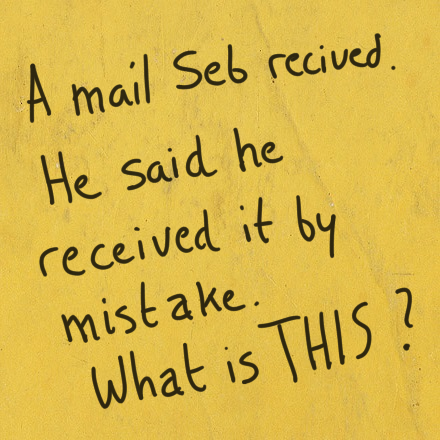 A mail Seb recived.
He said he
received it by
mistake.
What is THIS ?